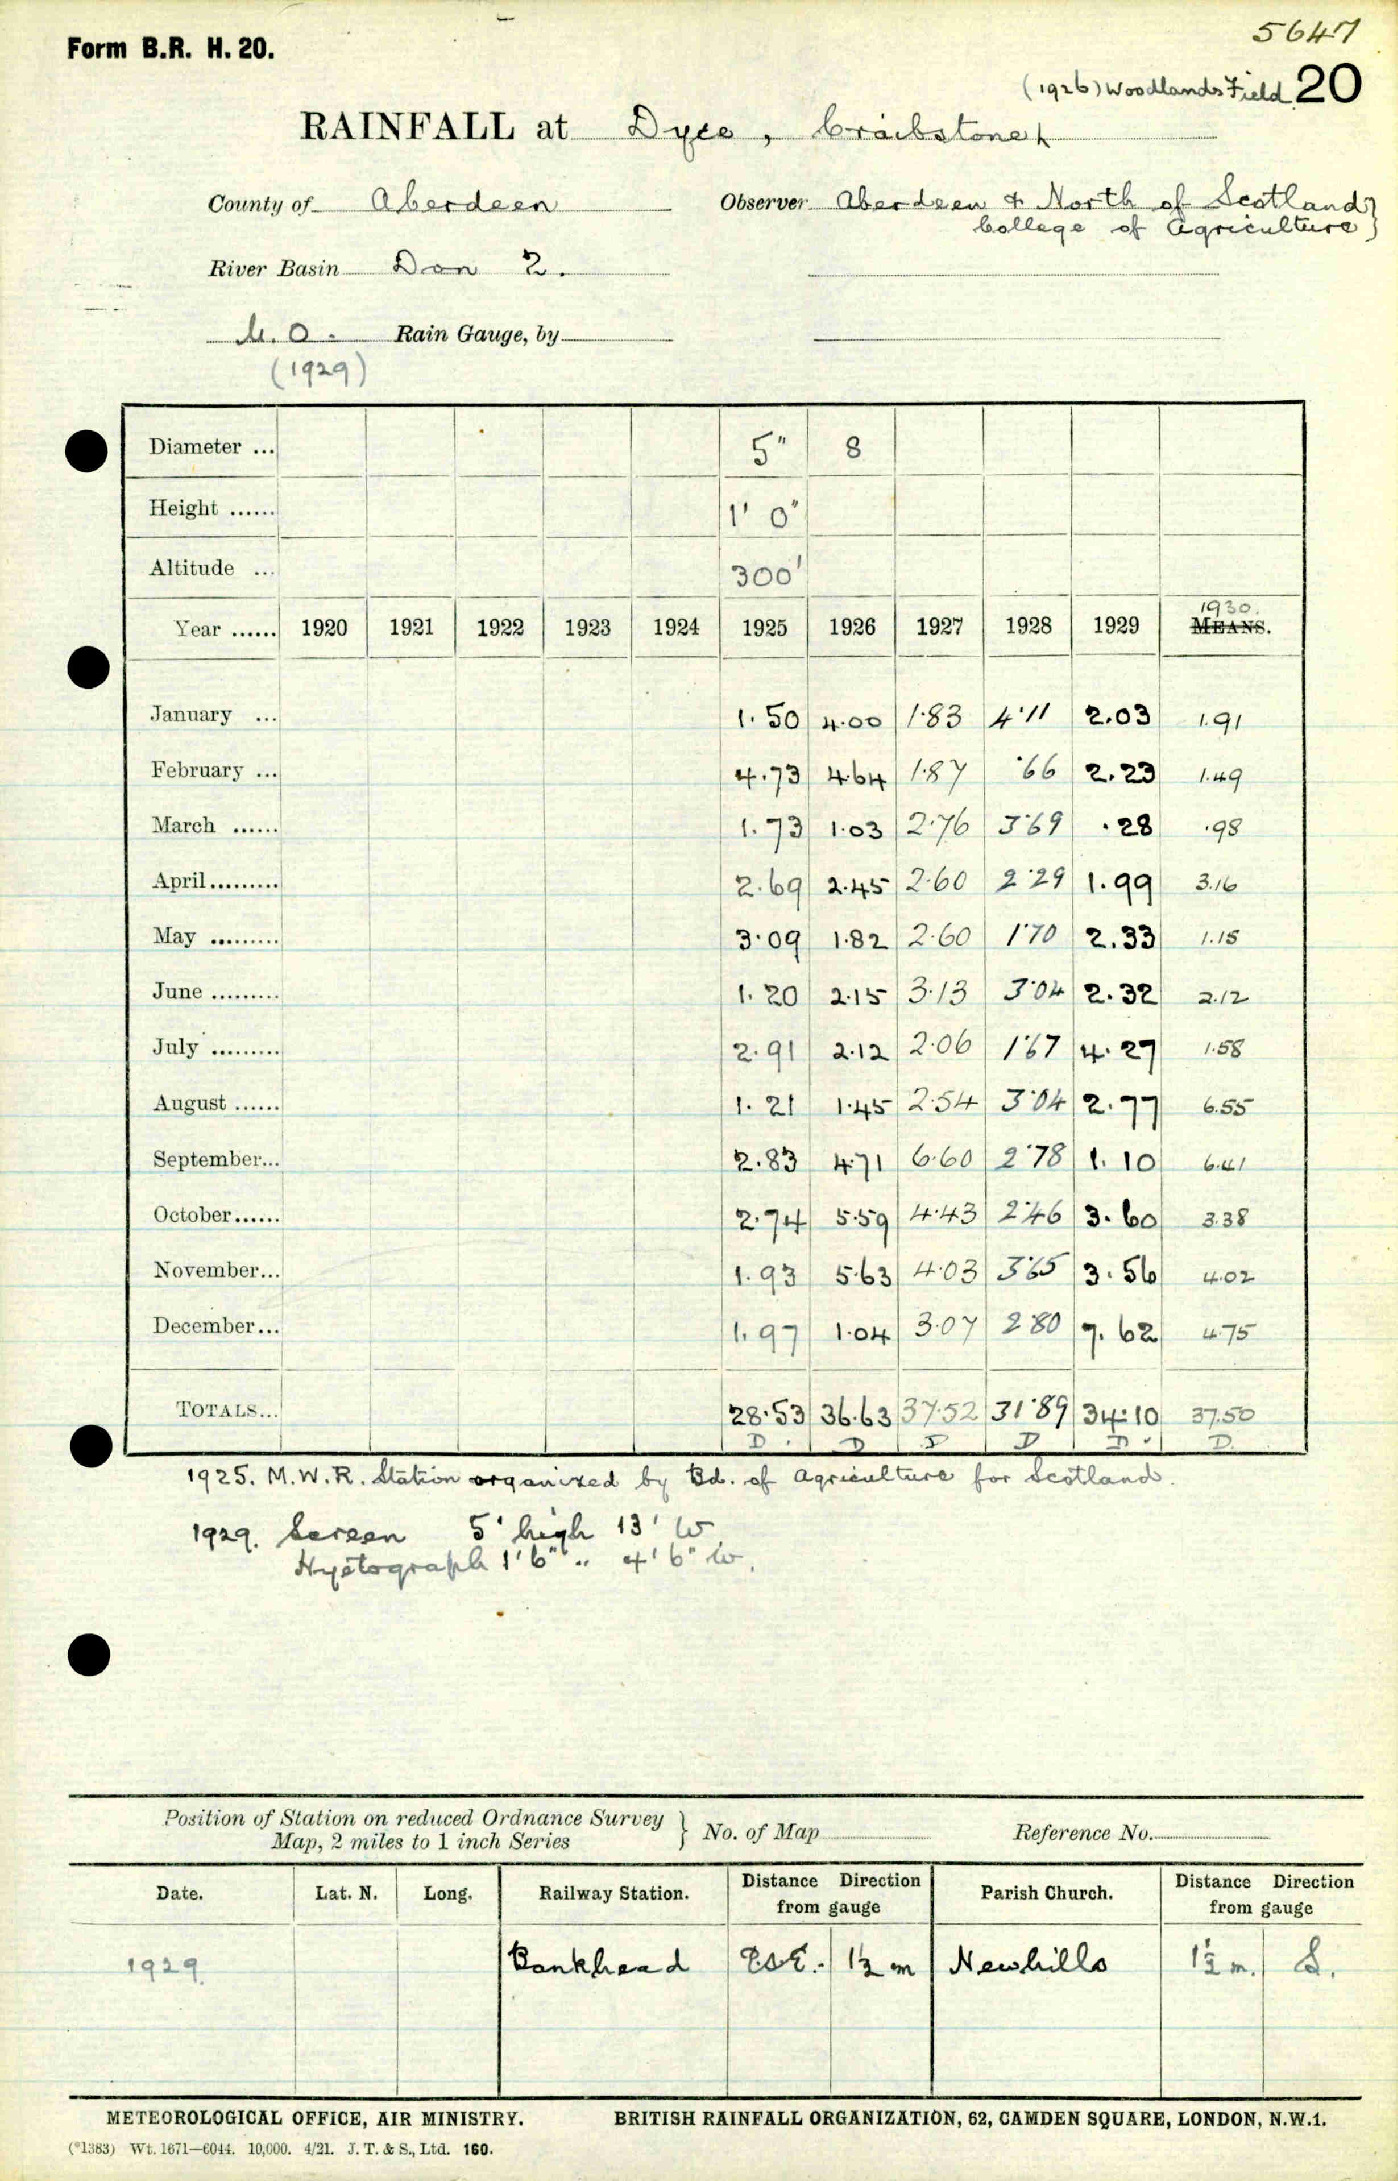 5647
Form B.R. H. 20.
(1926) Woodlands Field 20
RAINFALL at Dyce, Craibstone
County of Aberdeen Observer Aberdeen & North of Scotland }
College of Agriculture }
River Basin Don 2.
M.O. Rain Gauge, by
(1929)
Diameter ... 5" 8
Height ...... 1' 0"
Altitude ... 300'
1930.
Year ...... 1920 1921 1922 1923 1924 1925 1926 1927 1928 1929 MEANS.
January ... 1.50 4.00 1.83 4.11 2.03 1.91
February ... 4.73 4.64 1.87 .66 2.23 1.49
March ...... 1.73 1.03 2.76 3.69 .28 .98
April......... 2.69 2.45 2.60 2.29 1.99 3.16
May ......... 3.09 1.82 2.60 1.70 2.33 1.15
June ......... 1.20 2.15 3.13 3.04 2.32 2.12
July ......... 2.91 2.12 2.06 1.67 4.27 1.58
August ...... 1.21 1.45 2.54 3.04 2.77 6.55
September... 2.83 4.71 6.60 2.78 1.10 6.41
October...... 2.74 5.59 4.43 2.46 3.60 3.38
November... 1.93 5.63 4.03 3.65 3.56 4.02
December... 1.97 1.04 3.07 2.80 7.62 4.75
TOTALS... 28.53 36.63 37.52 31.89 34.10 37.50
D. D D D D. D.
1925. M.W.R. Station organized by Bd. of Agriculture for Scotland.
1929. Screen 5' high 13' W
Hyetograph 1'6" " 4'6" W.
Position of Station on reduced Ordnance Survey
Map, 2 miles to 1 inch Series } No. of Map Reference No.
Date. Lat. N. Long. Railway Station. Distance Direction from gauge Parish Church. Distance Direction from gauge
1929. Bankhead E.S.E. 1½ m Newhills 1½ m. S.
METEOROLOGICAL OFFICE, AIR MINISTRY. BRITISH RAINFALL ORGANIZATION, 62, CAMDEN SQUARE, LONDON, N.W.1.
(*1383) Wt. 1671—6044. 10,000. 4/21. J. T. & S., Ltd. 160.